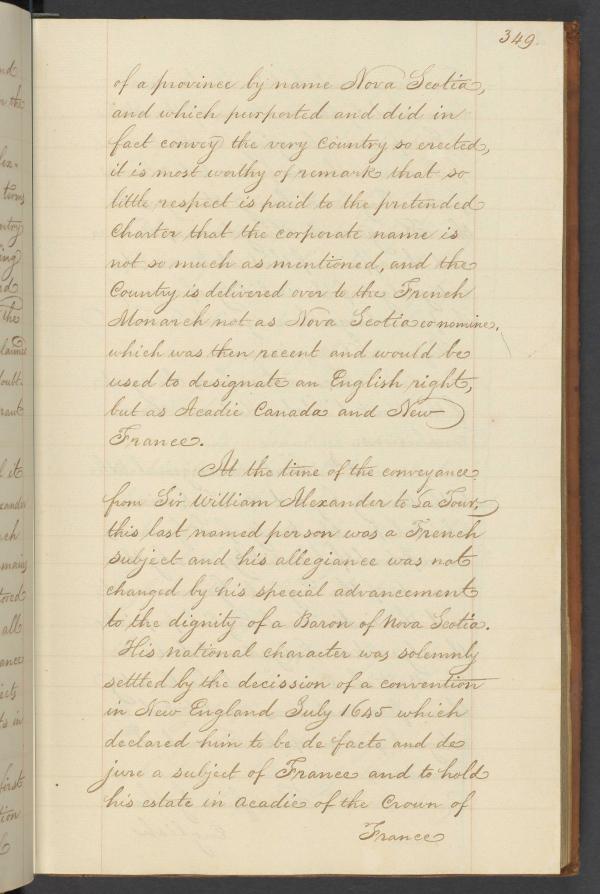 349.
of a province by name Nova Scotia,
and which purported and did in
fact convey the very Country so erected,
it is most worthy of remark that so
little respect is paid to the pretended
Charter that the corporate name is
not so much as mentioned, and the
Country is delivered over to the French
Monarch not as Nova Scotia eo nomine,
which was then recent and would be
used to designate an English right,
but as Acadie Canada and New
France.
At the time of the conveyance
from Sir William Alexander to La Tour,
this last named person was a French
subject and his allegiance was not
changed by his special advancement
to the dignity of a Baron of Nova Scotia.
His national character was solemnly
settled by the decission of a convention
in New England July 1645 which
declared him to be de facto and de
jure a subject of France and to hold
his estate in Acadie of the Crown of
France